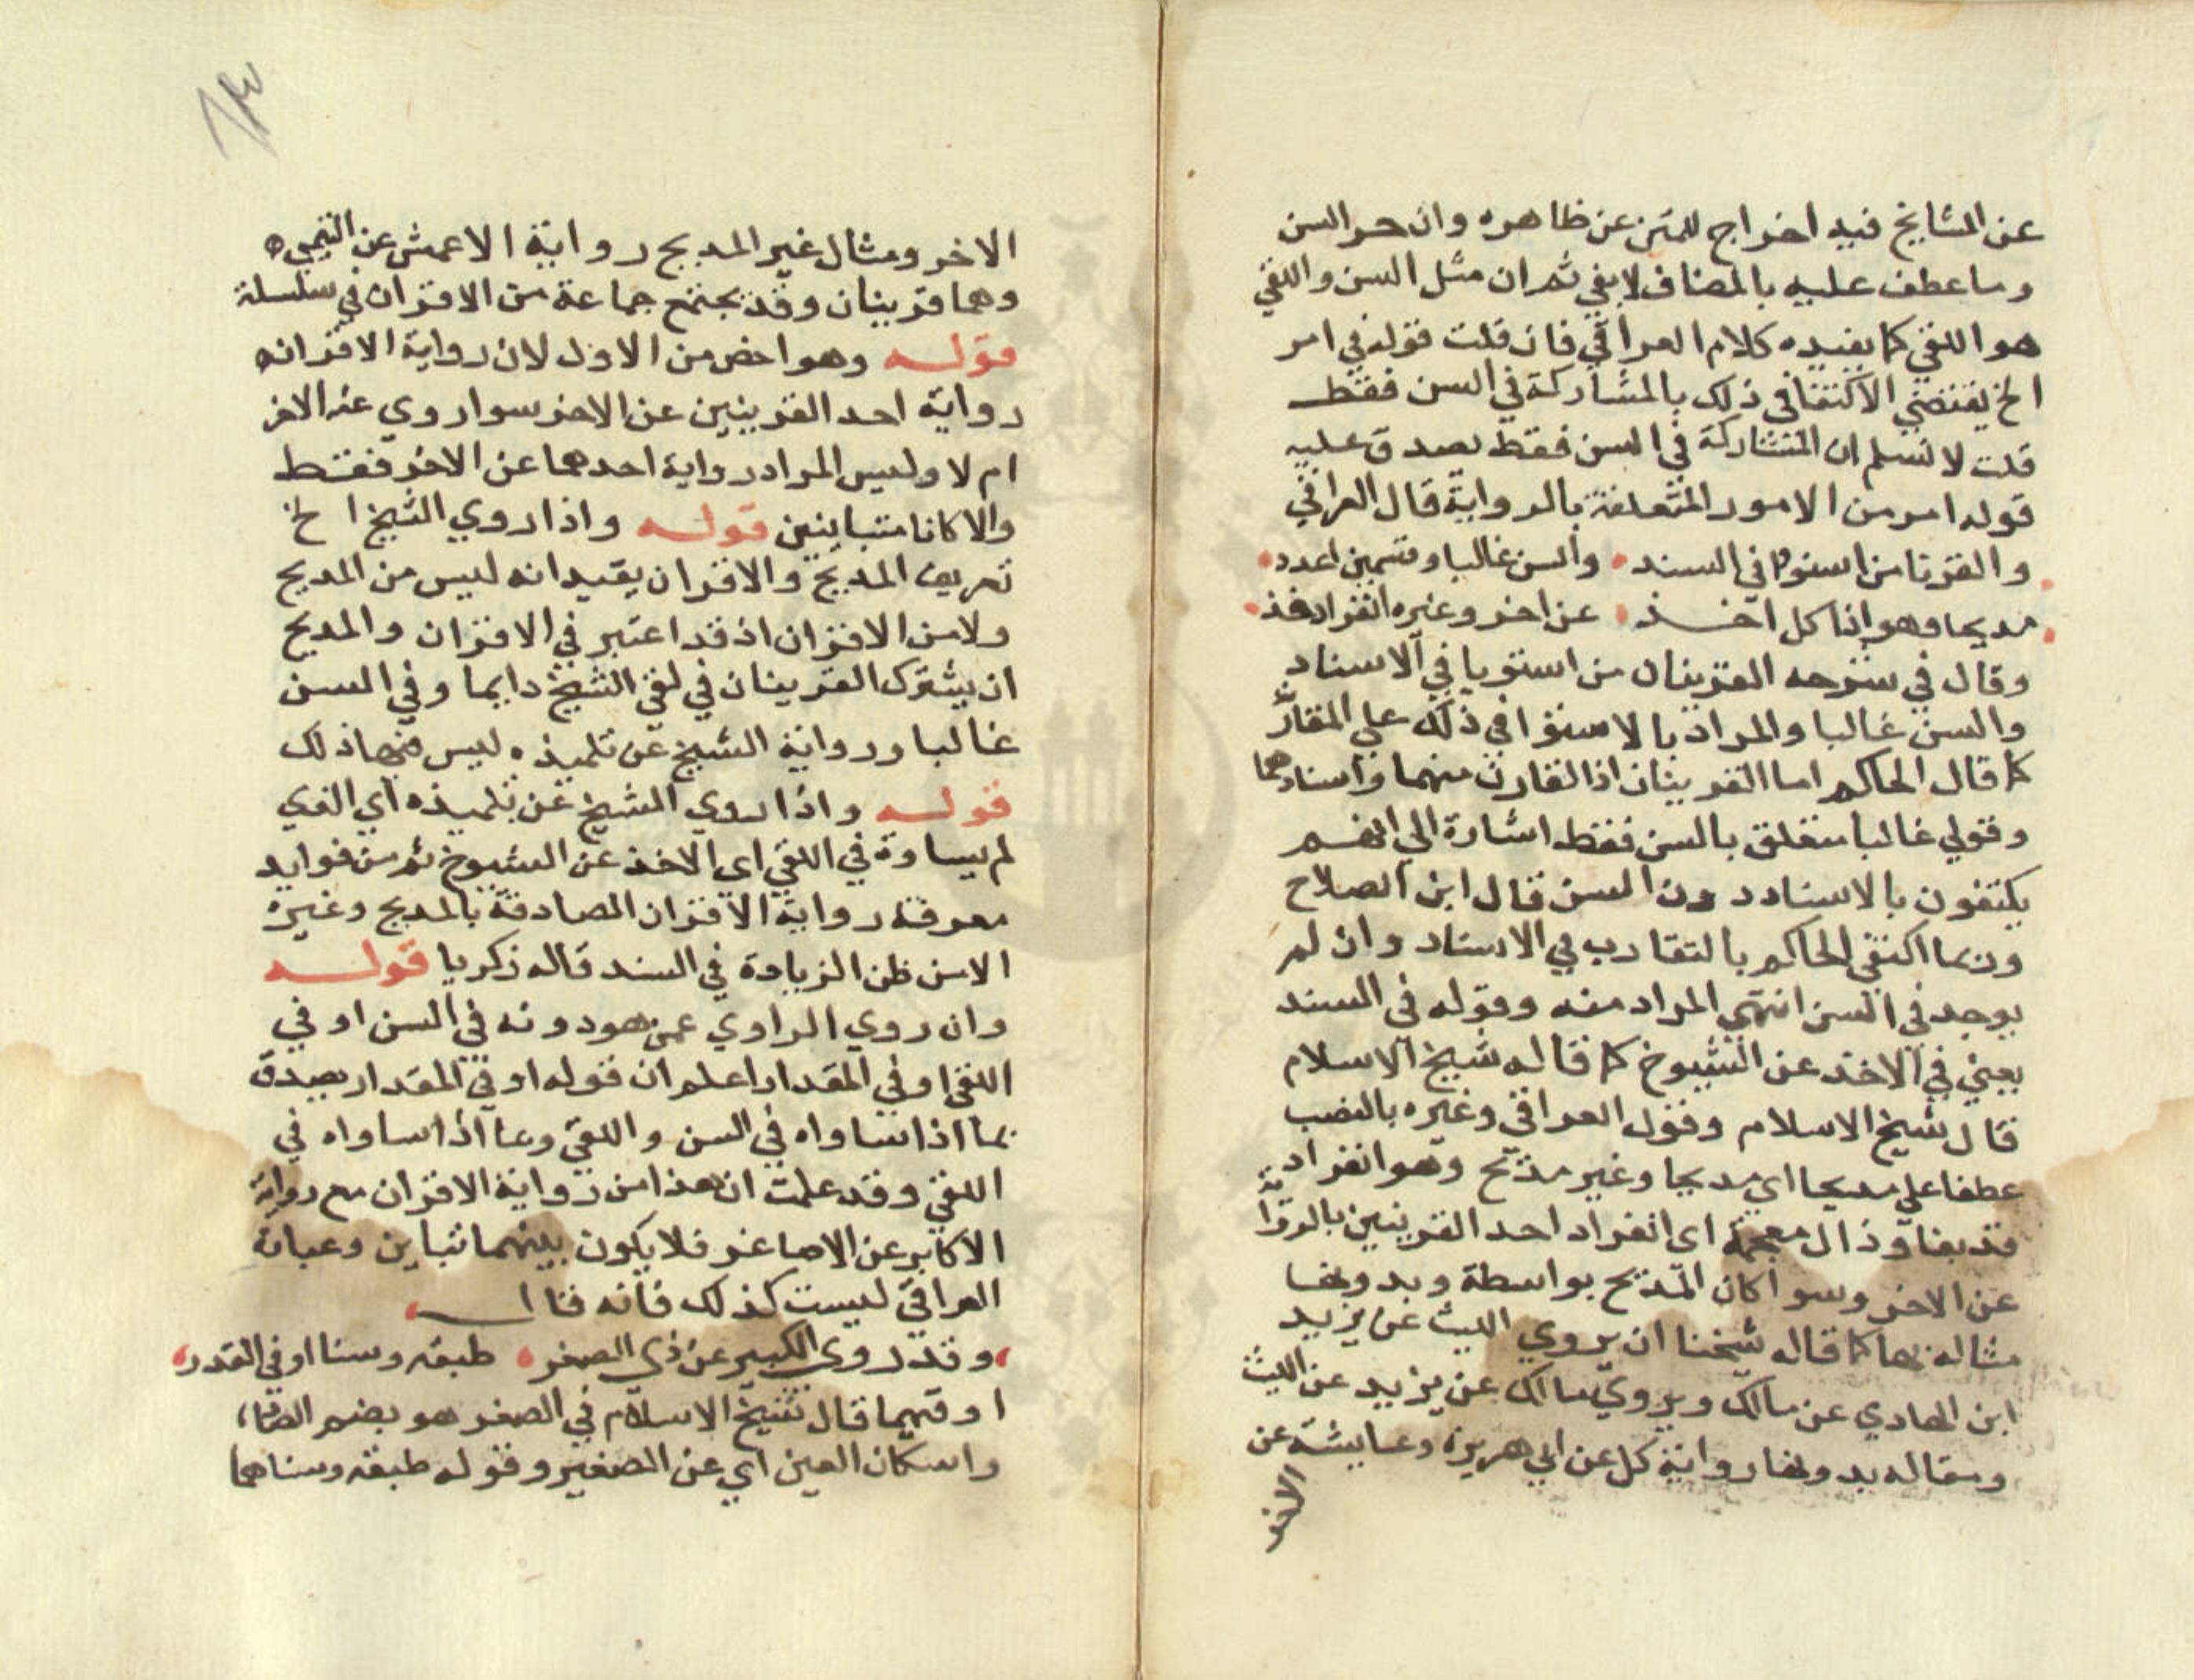 عن المشايخ فيه اخراج للمتن عن ظاهره وان جر السن
وما عطف عليه بالمضاف لا بفي ثم ان مثل السن واللقي
هو اللقي كما يفيده كلام العراقي فان قلت قوله في امر
الخ يقتضي الاكتفا في ذلك بالمشاركة في السن فقط
قلت لا نسلم ان المشاركة في السن فقط يصدق عليه
قوله امر من الامور المتعلقة بالرواية قال العراقي
والقرنا من استووا في السند والسن غالبا وقسمين اعدد
مدبجا وهو اذا كل اخذ عن اخر وغيره انفراد فذ
وقال في شرحه القرينان من استويا في الاسناد
والسن غالبا والمراد بالاستوا في ذلك علي المقاربة
كما قال الحاكم اما القرينان اذا تقارب سنهما واسنادهما
وقولي غالبا متعلق بالسن فقط اشارة الي انهم
يكتفون بالاسناد دون السن قال ابن الصلاح
وربما اكتفي الحاكم بالتقارب في الاسناد وان لم
يوجد في السن انتهي المراد منه وقوله في السند
يعني في الاخذ عن الشيوخ كما قاله شيخ الاسلام
قال شيخ الاسلام وقول العراقي وغيره بالنصب
عطفا علي مدبجا اي مدبجا وغير مدبج وهو انفراد
فذ بفا وذال معجمة اي انفراد احد القرينين بالرواية
عن الاخر وسوا كان المدبج بواسطة وبدونها
مثاله بها كما قاله شيخنا ان يروي الليث عن يزيد
ابن الهادي عن مالك ويروي مالك عن يزيد عن الليث
ومثاله بدونها رواية كل عن ابي هريرة وعايشة عن
الاخر
الاخر ومثال غير المدبج رواية الاعمش عن التيمي
وهما قرينان وقد يجتمع جماعة من الاقران في سلسلة
قوله وهو اخص من الاول لان رواية الاقران
رواية احد القرينين عن الاخر سوا روي عنه الاخر
ام لا وليس المراد رواية احدهما عن الاخر فقط
والا كانا متباينين قوله واذا روي الشيخ الخ
تعريف المدبج والاقران يفيد انه ليس من المدبج
ولا من الاقران اذ قد اعتبر في الاقران والمدبج
ان يشترك القرينان في لقي الشيخ دايما وفي السن
غالبا ورواية الشيخ عن تلميذه ليس فيها ذلك
قوله واذا روي الشيخ عن تلميذه اي الذي
لم يساوه في اللقي اي الاخذ عن الشيوخ ثم من فوايد
معرفة رواية الاقران الصادقة بالمدبج وغيره
الامن ظن الزيادة في السند قاله زكريا قوله
وان روي الراوي عمن هو دونه في السن او في
اللقي او في المقدار اعلم ان قوله او في المقدار يصدق
بما اذا ساواه في السن واللقي وما اذا ساواه في
اللقي وقد علمت ان هذا من رواية الاقران مع رواية
الاكابر عن الاصاغر فلا يكون بينهما تباين وعبارة
العراقي ليست كذلك فانه قال
وقد روي الكبير عن ذي الصغر طبقة وسنا او في القدر
او فيهما قال شيخ الاسلام في الصغر هو بضم الصاد
واسكان الغين اي عن الصغير وقوله طبقة وسنا هما